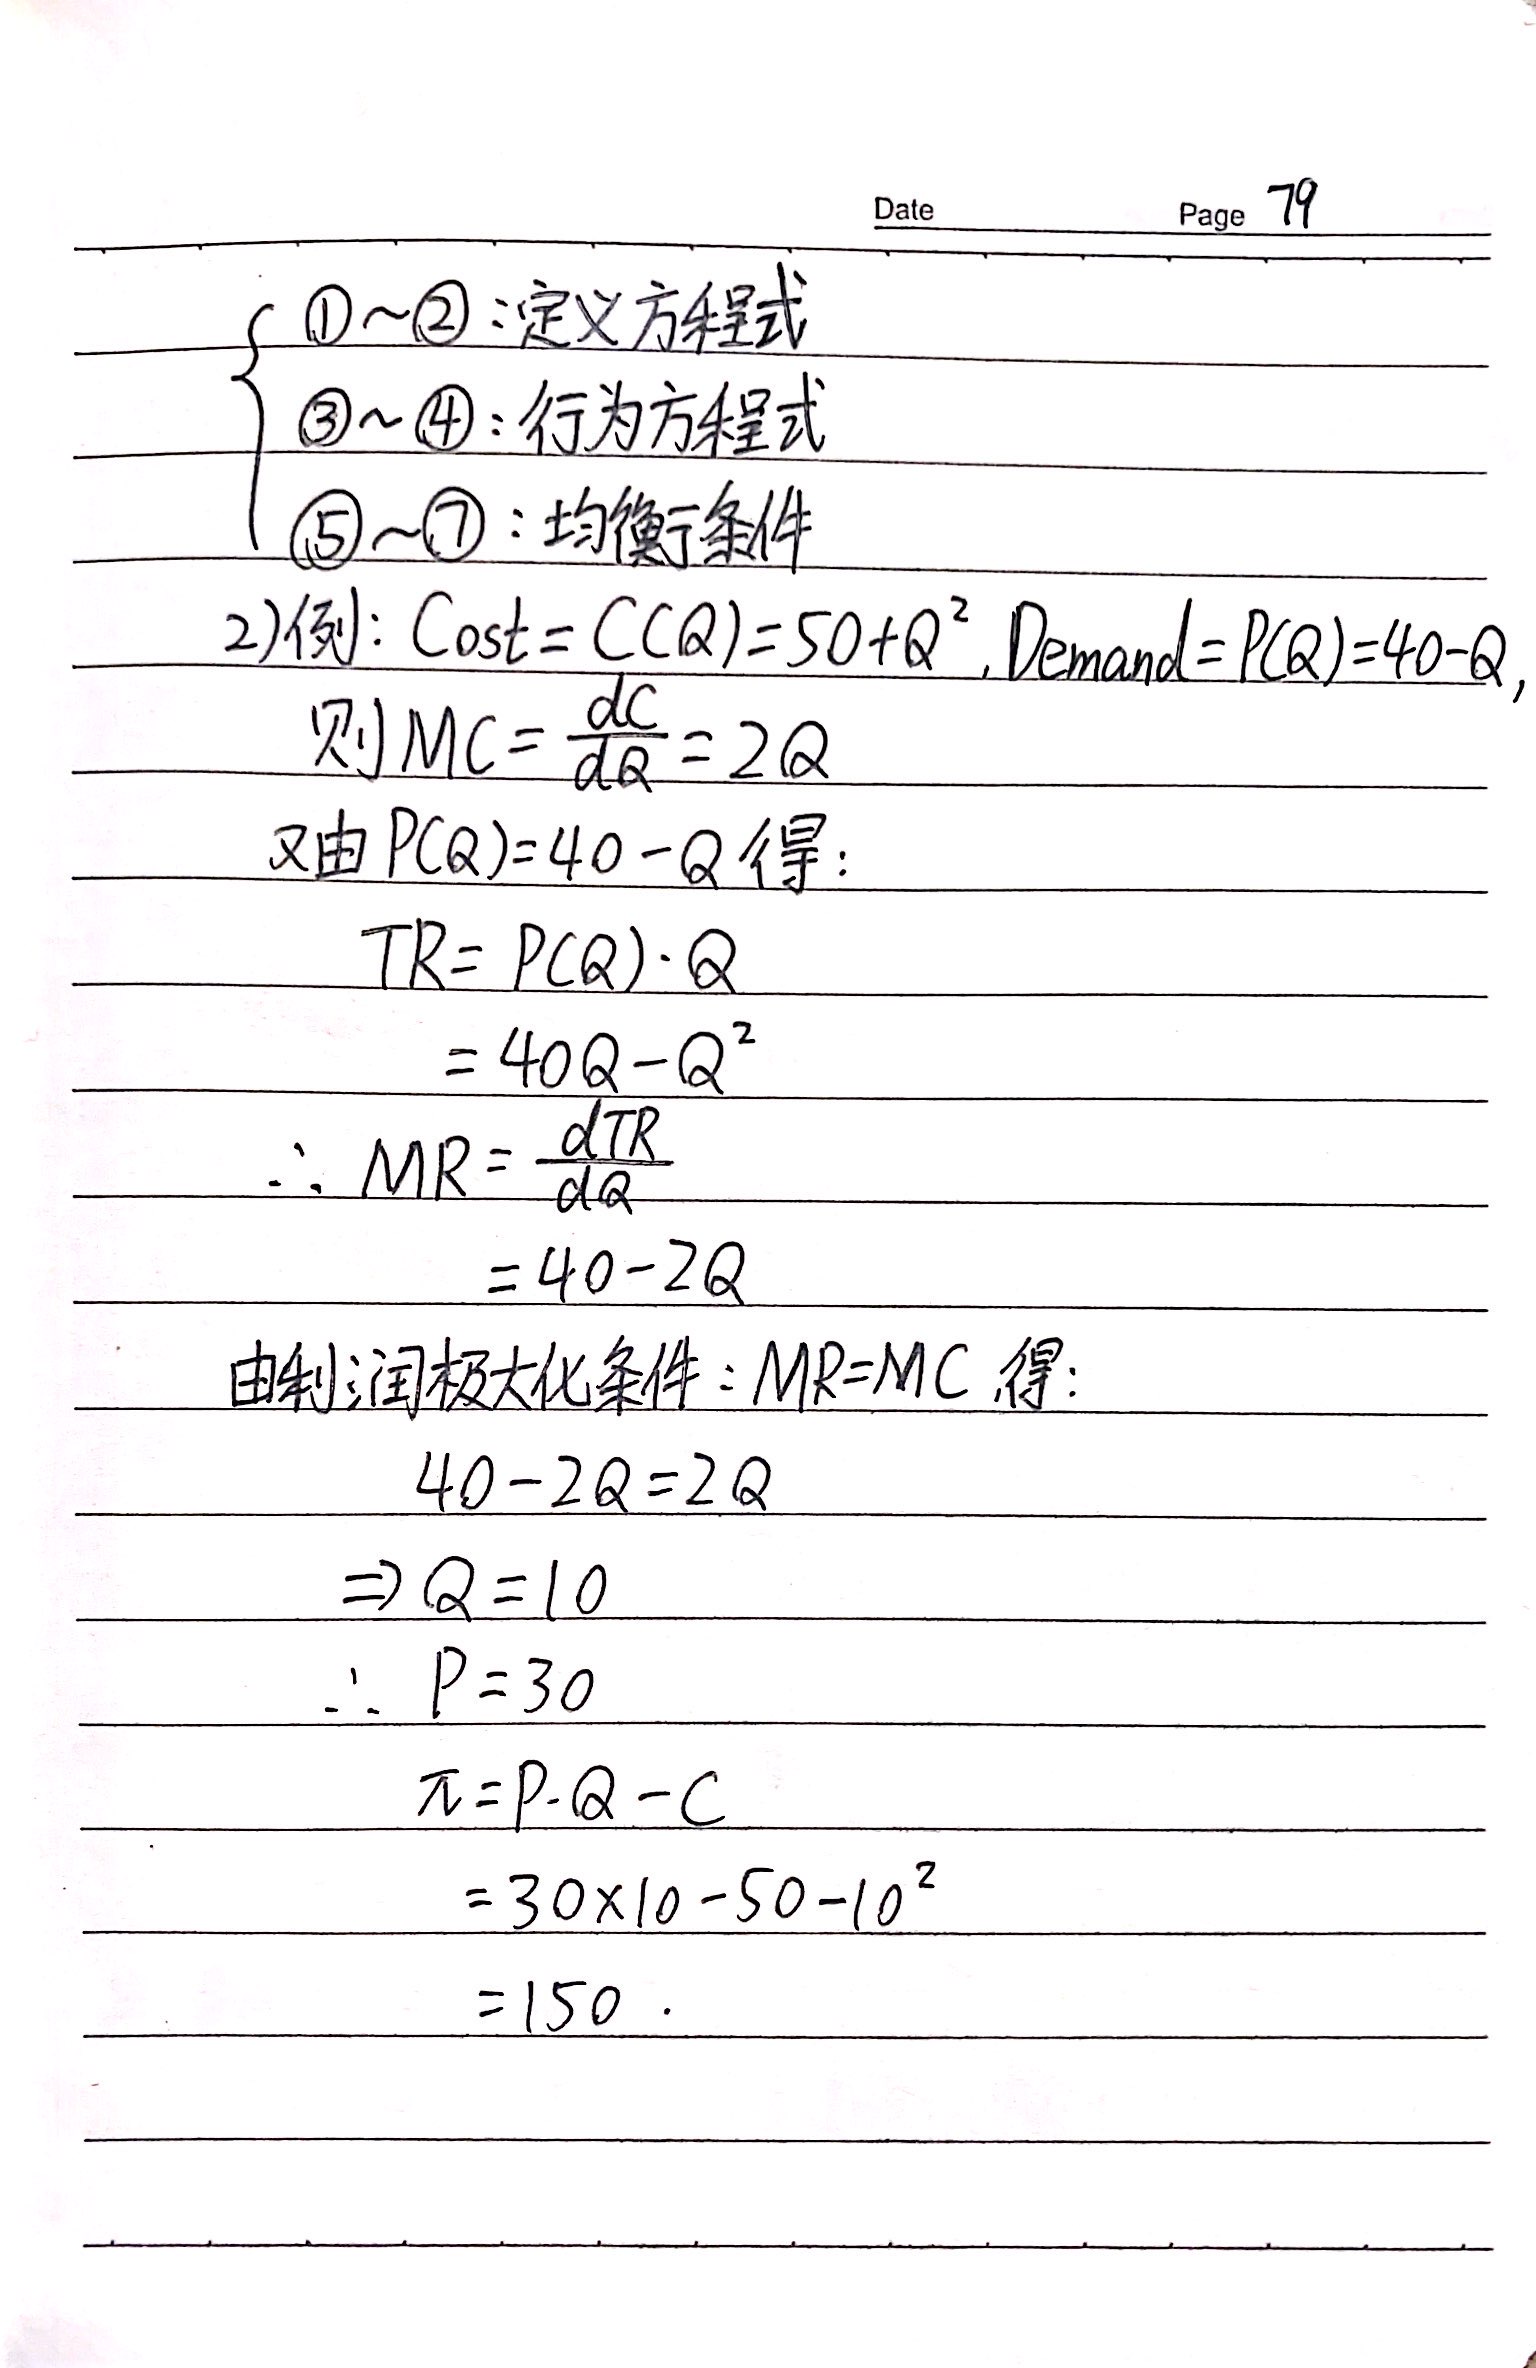 Date Page 79
①~②:定义方程式
③~④:行为方程式
⑤~⑦:均衡条件
2)例: Cost=C(Q)=50+Q², Demand=P(Q)=40-Q,
则MC=dC/dQ=2Q
又由P(Q)=40-Q得:
TR=P(Q)·Q
=40Q-Q²
∴ MR=dTR/dQ
=40-2Q
由利润极大化条件:MR=MC得:
40-2Q=2Q
⇒Q=10
∴ P=30
π=P·Q-C
=30×10-50-10²
=150.